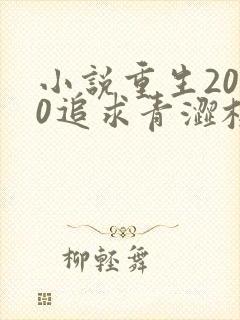 小説重生20
0追求青澀校
柳輕舞